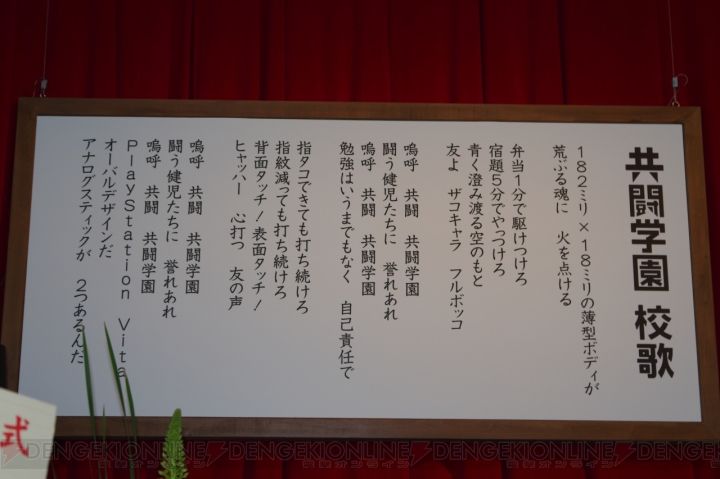 共闘学園 校歌
182ミリ×18ミリの薄型ボディが
荒ぶる魂に 火を点ける
弁当1分で駆けつけろ
宿題5分でやっつけろ
青く澄み渡る空のもと
友よ ザコキャラ フルボッコ
嗚呼 共闘 共闘学園
闘う健児たちに 誉れあれ
嗚呼 共闘 共闘学園
勉強はいうまでもなく 自己責任で
指タコできても打ち続けろ
指紋減っても打ち続けろ
背面タッチ!表面タッチ!
ヒャッハー 心打つ 友の声
嗚呼 共闘 共闘学園
闘う健児たちに 誉れあれ
嗚呼 共闘 共闘学園
PlayStation Vita
オーバルデザインだ
アナログスティックが 2つあるんだ
式
DENGEKIONLINE
電撃オンライン
DENGEKIONLINE
電撃オンライン
DENGEKIONLINE
電撃オンライン
DENGEKIONLINE
電撃オンライン